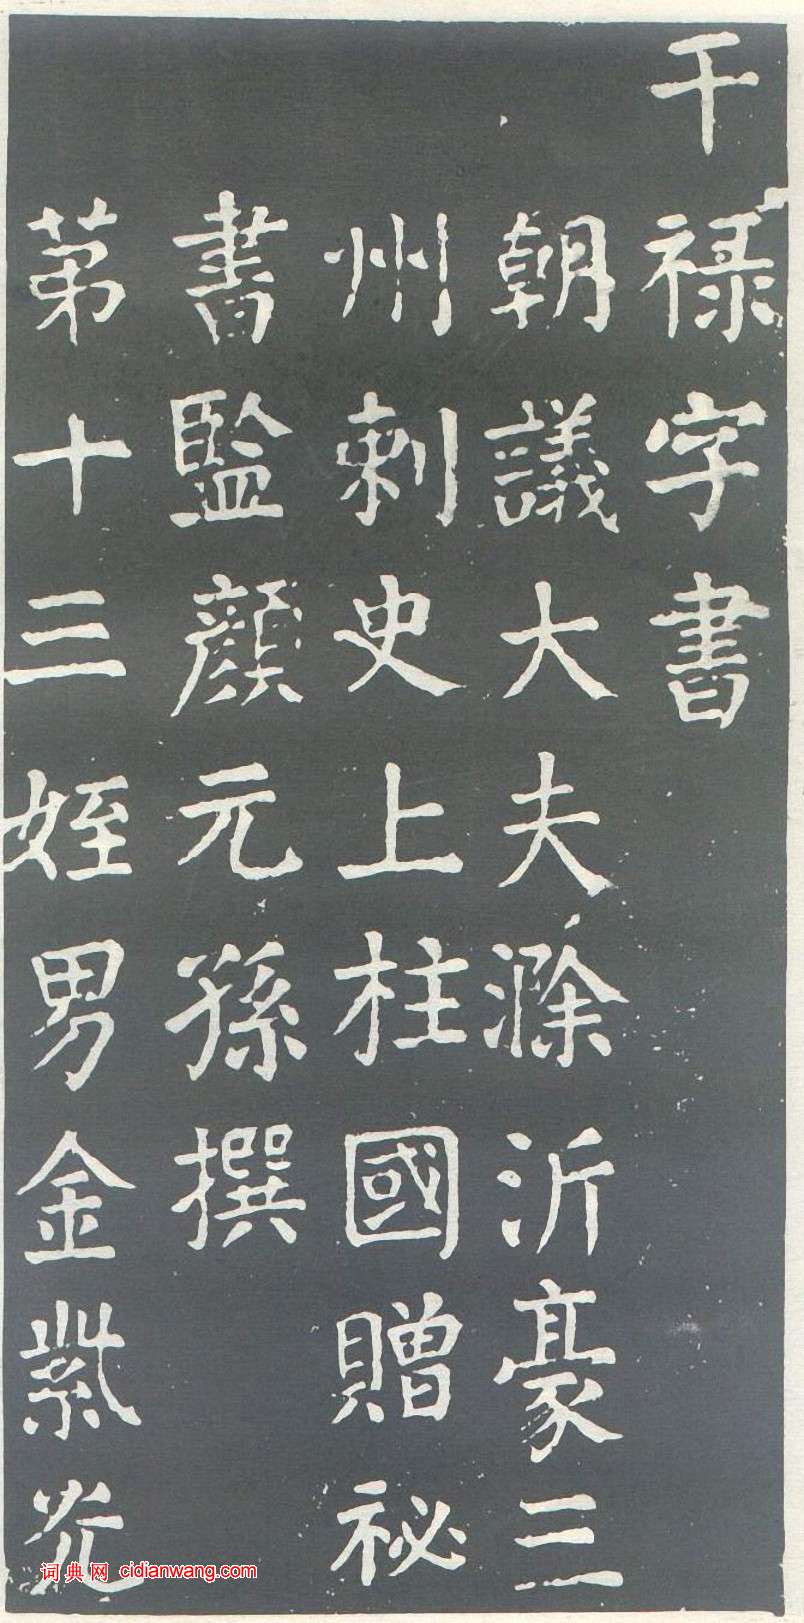 干祿字書
朝議大夫滁沂豪三
州刺史上柱國贈祕
書監顏元孫撰
第十三姪男金紫光
词典网 cidianwang.com